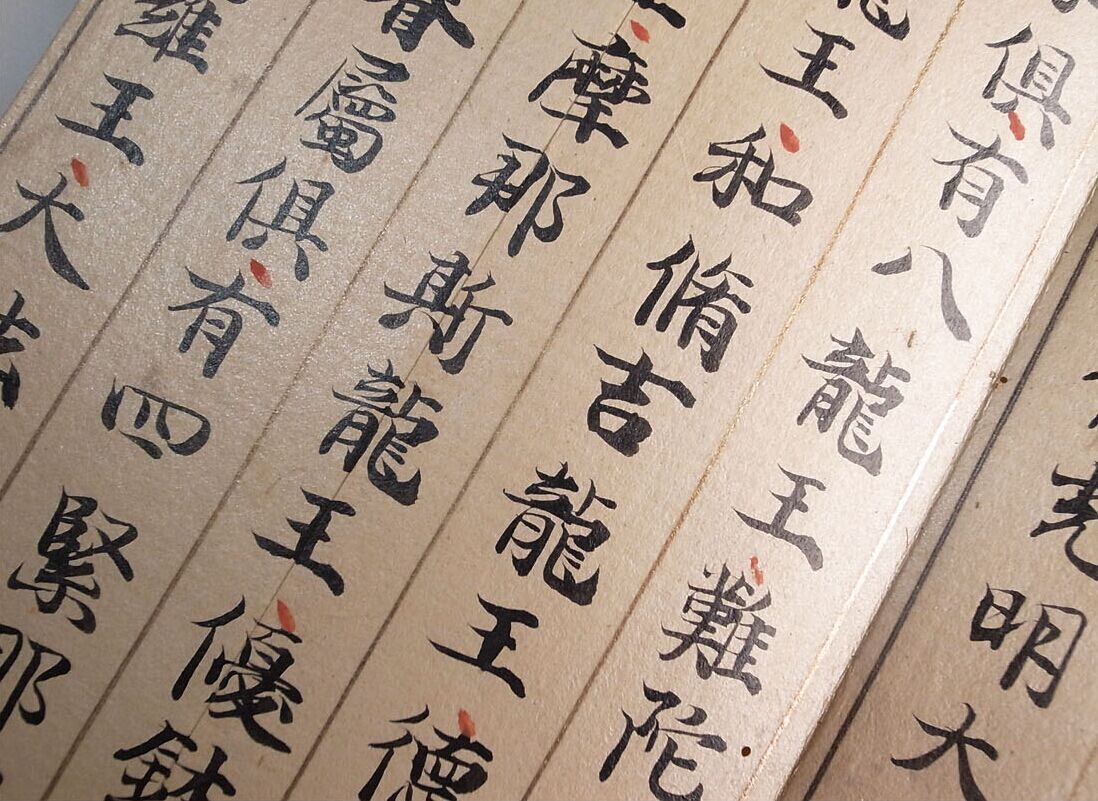 光明大
俱有八龍王難陀
龍王和脩吉龍王德
王摩那斯龍王優鉢
眷屬俱有四緊那
羅王大法